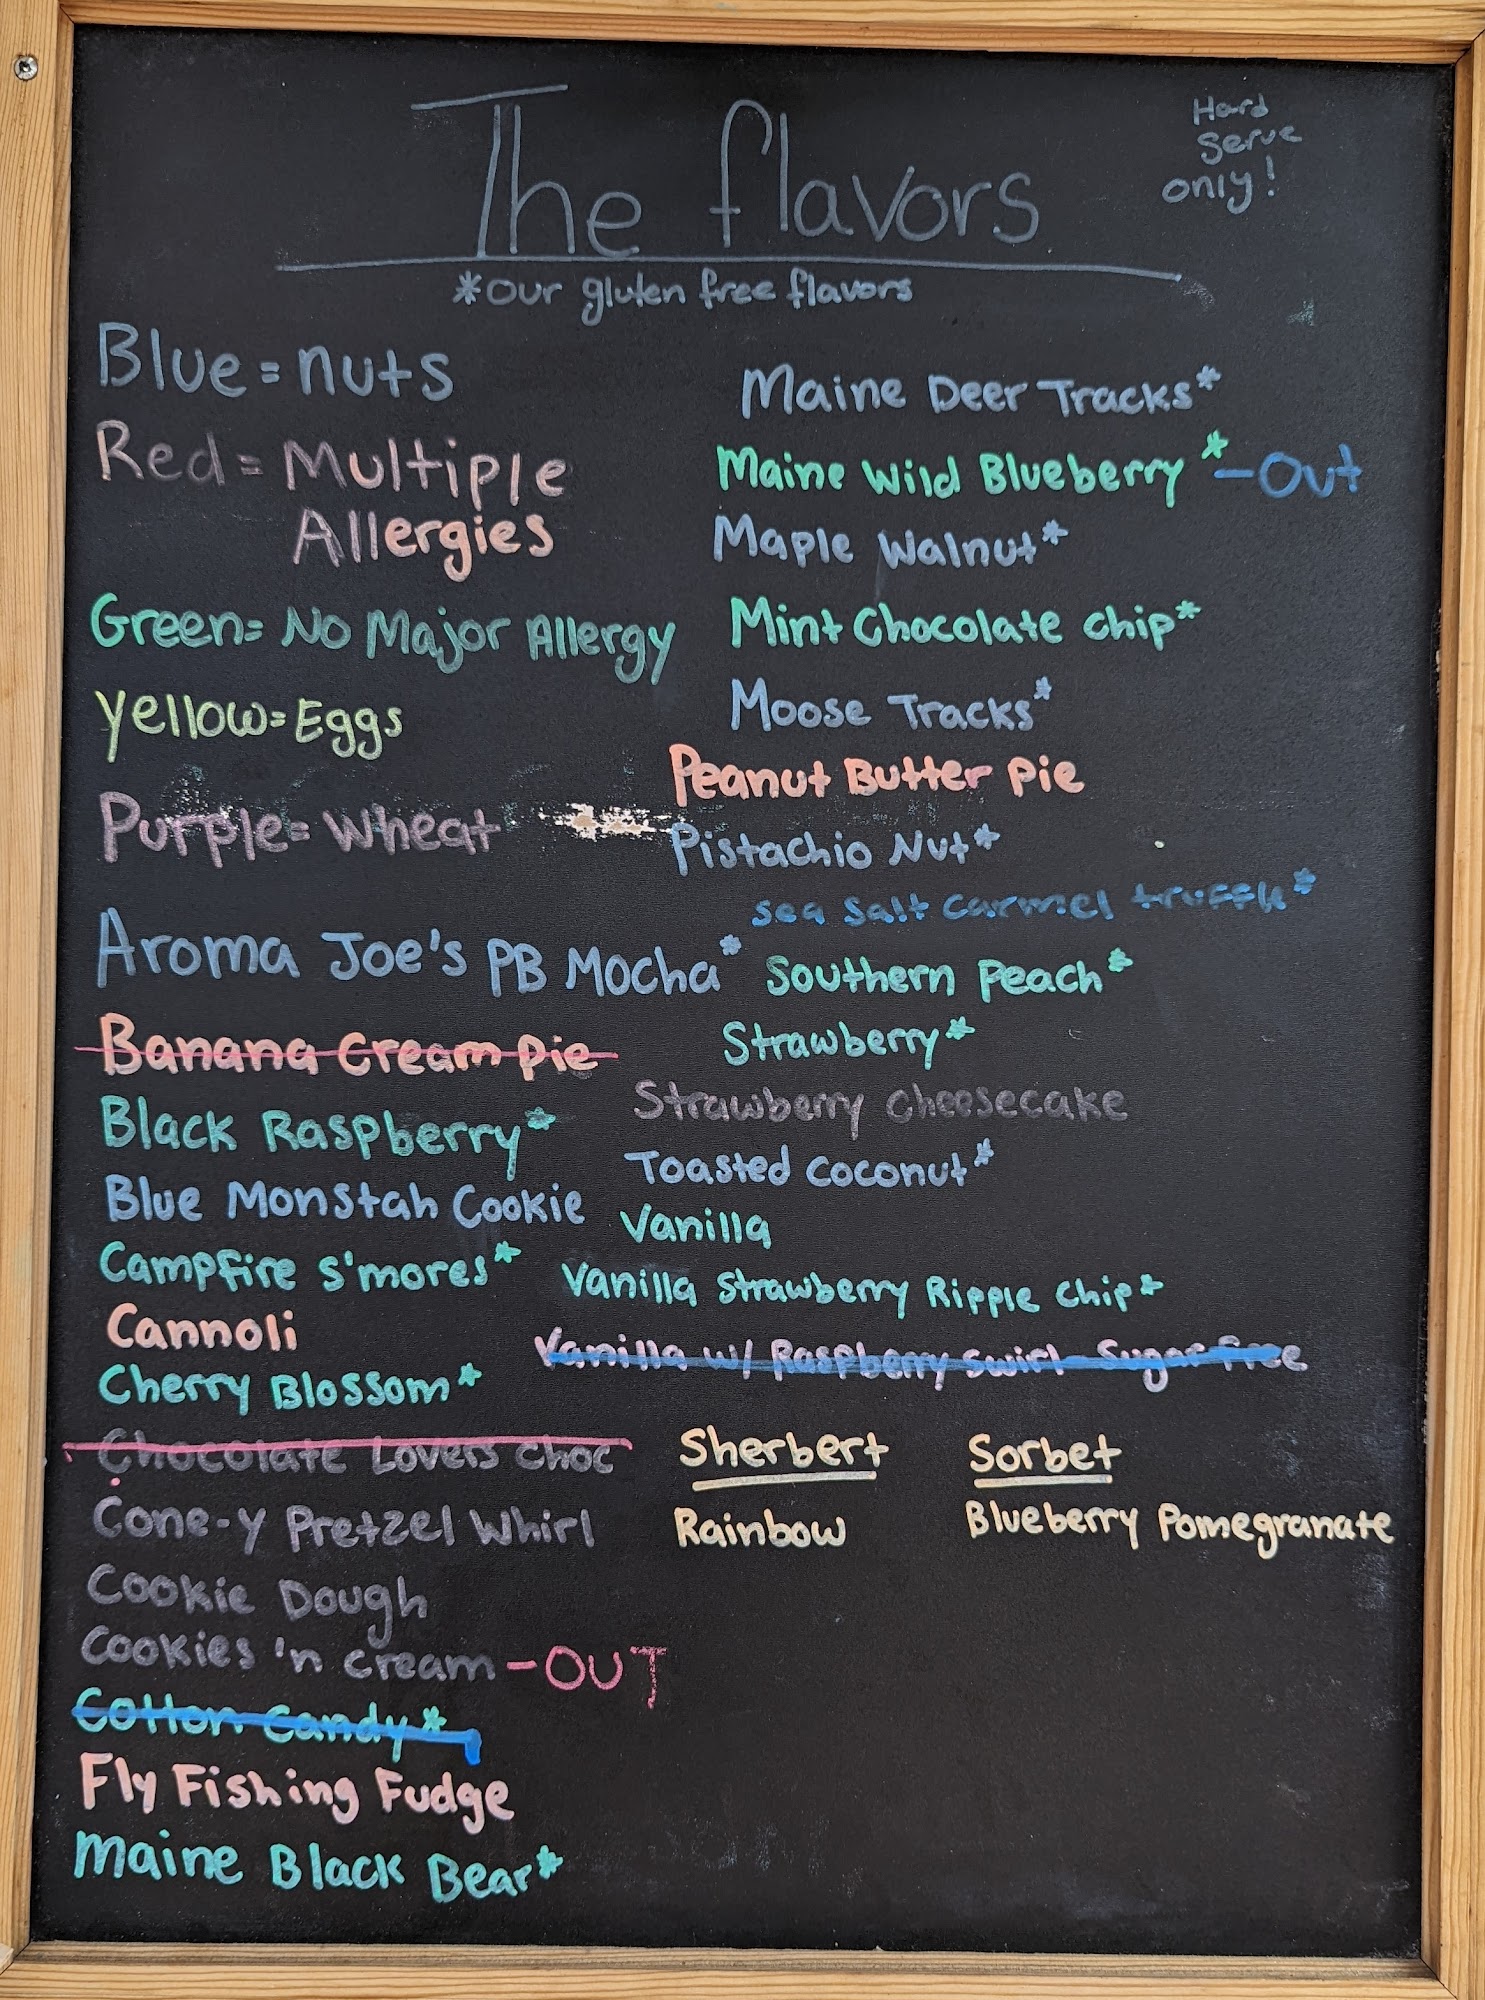 The flavors
Hard
Serve
only!
*our gluten free flavors
Blue = nuts
Red = Multiple
Allergies
Green= No Major Allergy
Yellow= Eggs
Purple= Wheat
Aroma Joe's PB Mocha*
Banana Cream Pie
Black Raspberry*
Blue Monstah Cookie
Campfire S'mores*
Cannoli
Cherry Blossom*
Chocolate Lovers Choc
Cone-y Pretzel Whirl
Cookie Dough
Cookies 'n cream -OUT
Cotton Candy*
Fly Fishing Fudge
Maine Black Bear*
Maine Deer Tracks*
Maine Wild Blueberry* -Out
Maple Walnut*
Mint Chocolate chip*
Moose Tracks*
Peanut Butter Pie
Pistachio Nut*
Sea Salt Carmel truffle*
Southern Peach*
Strawberry*
Strawberry Cheesecake
Toasted Coconut*
Vanilla
Vanilla Strawberry Ripple Chip*
Vanilla w/ Raspberry swirl - Sugar free
Sherbert
Rainbow
Sorbet
Blueberry Pomegranate